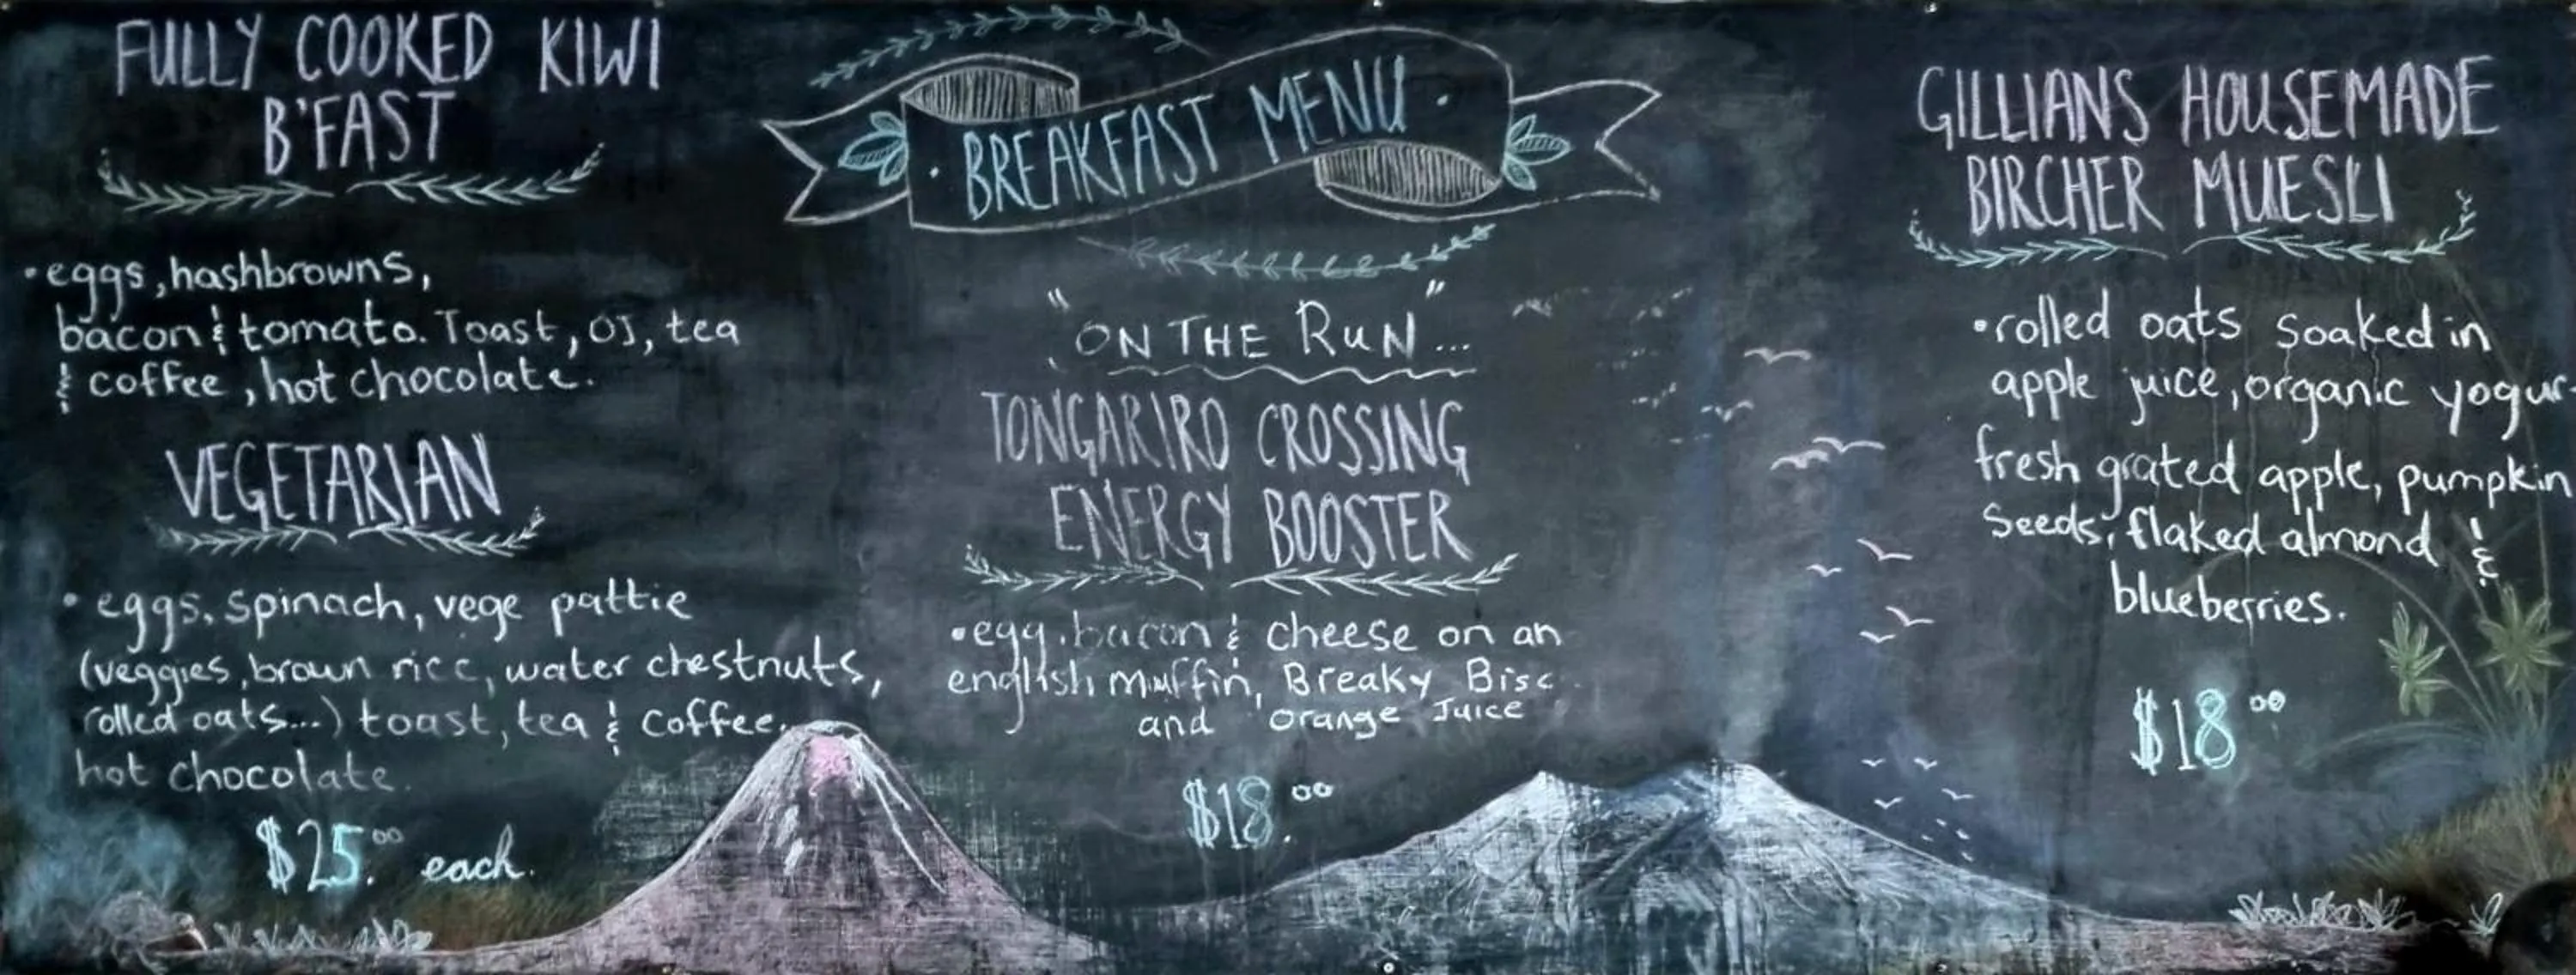 FULLY COOKED KIWI
B'FAST
• eggs, hashbrowns,
bacon & tomato. Toast, OJ, tea
& coffee, hot chocolate.
VEGETARIAN
• eggs, spinach, vege pattie
(veggies, brown rice, water chestnuts,
rolled oats...) toast, tea & coffee,
hot chocolate.
$25.00 each.
• BREAKFAST MENU •
"ON THE RUN"...
TONGARIRO CROSSING
ENERGY BOOSTER
• egg, bacon & cheese on an
english muffin, Breaky Bisc
and orange Juice
$18.00
GILLIANS HOUSEMADE
BIRCHER MUESLI
• rolled oats soaked in
apple juice, organic yogur
fresh grated apple, pumpkin
seeds, flaked almond &
blueberries.
$18.00